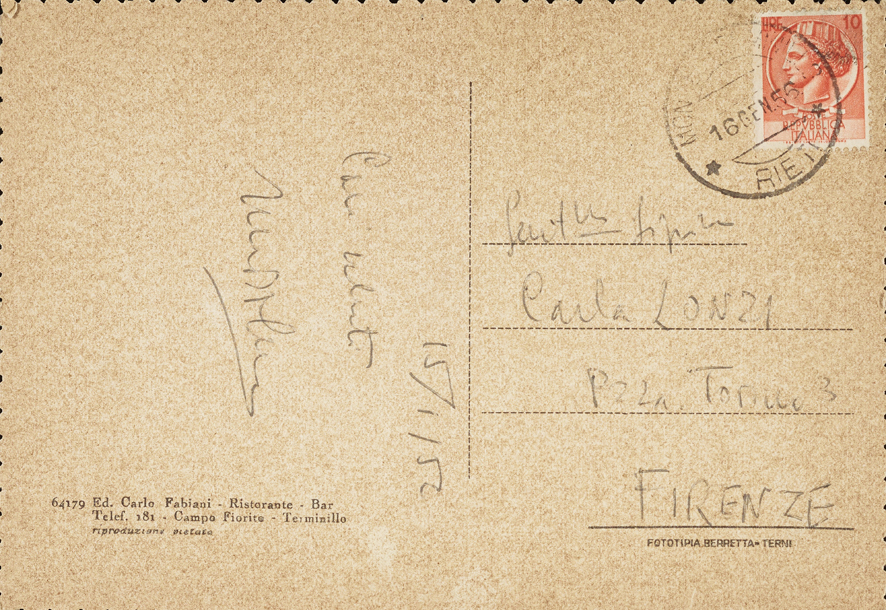 Cari saluti
15/1/55
LIRE 10
REPVBBLICA
ITALIANA
16.GEN.55
RIETI
Gent.ma Signorina
Carla LONZI
P.zza Torino 3
FIRENZE
64179 Ed. Carlo Fabiani - Ristorante - Bar
Telef. 181 - Campo Fiorito - Terminillo
riproduzione vietata
FOTOTIPIA BERRETTA - TERNI